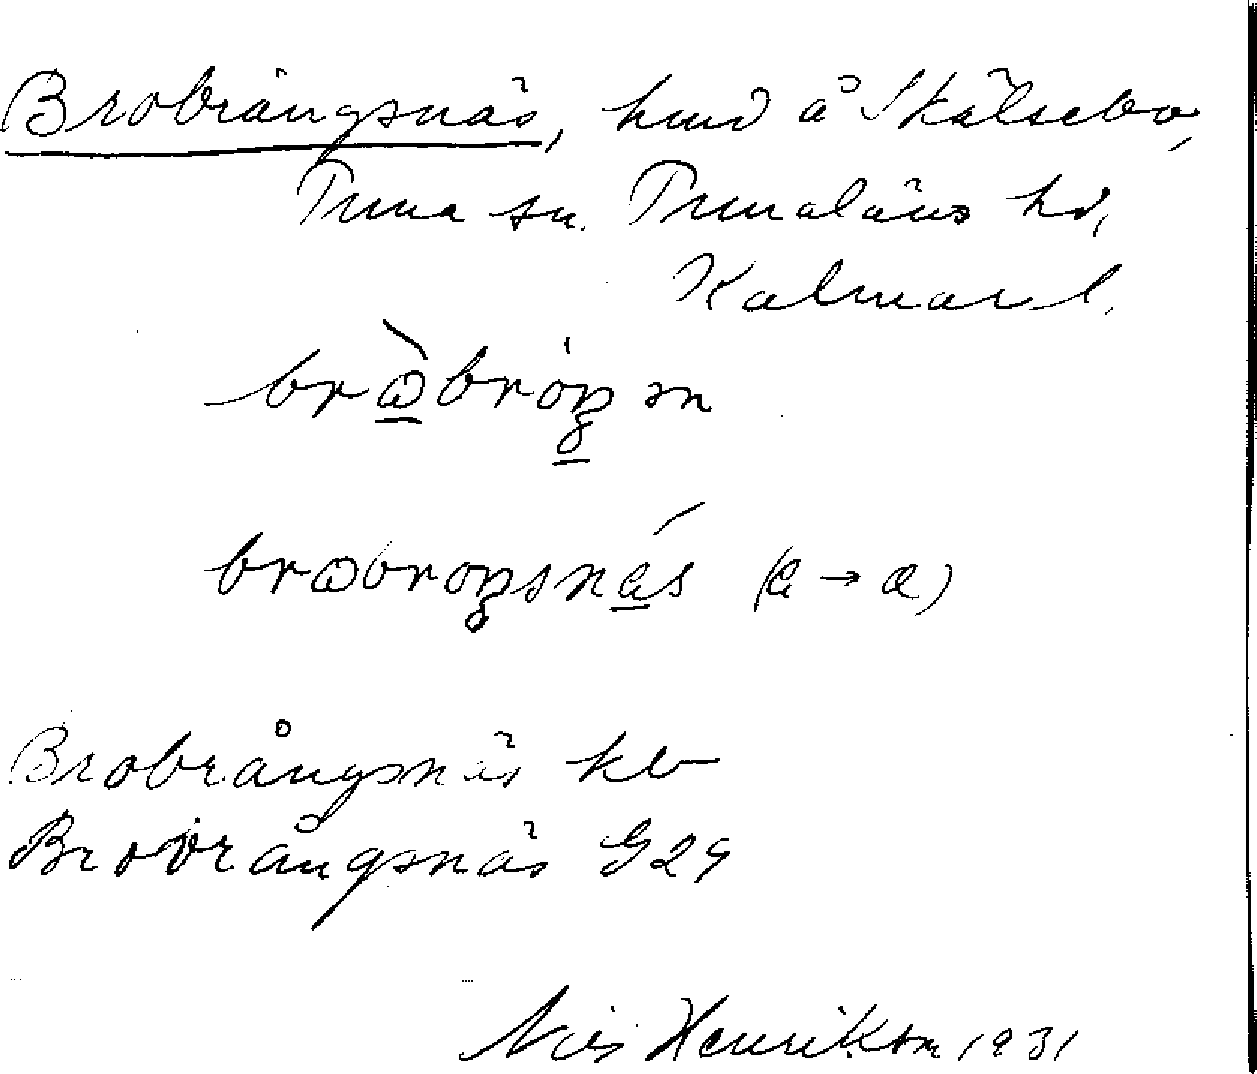 Brobrångsnäs, hmd å Skälsebo,
Tuna sn. Tunaläns hd,
Kalmar l.
brɷ̀brȯŋ sn
brɷbroŋsnás (a → a)
Brobrångsnäs kb
Brobrångsnäs G29
Nils Henrikson 1931